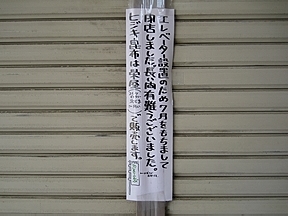 エレベーター設置のため7月をもちまして
閉店しました。長い間有難うございました。
ヒジキ、昆布は栄屋で販売します。